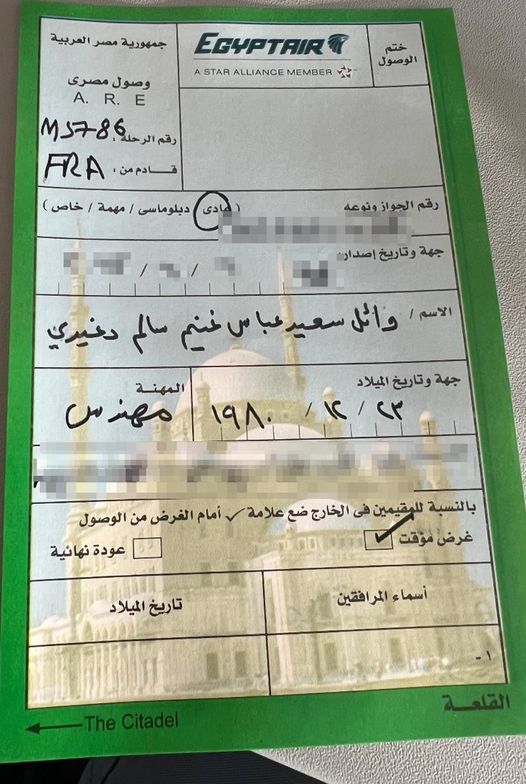 جمهورية مصر العربية
EGYPTAIR
A STAR ALLIANCE MEMBER
ختم
الوصول
وصول مصرى
A. R. E
رقم الرحلة: MS786
قادم من: FRA
رقم الجواز ونوعه (عادى / دبلوماسى / مهمة / خاص)
جهة وتاريخ إصداره
الاسم / وائل سعيد عباس غنيم سالم دغيدي
جهة وتاريخ الميلاد
٢٣ / ١٢ / ١٩٨٠
المهنة
مهندس
بالنسبة للمقيمين فى الخارج ضع علامة ✓ أمام الغرض من الوصول
غرض مؤقت ✓ عودة نهائية
أسماء المرافقين
تاريخ الميلاد
١ -
القلعـة
The Citadel